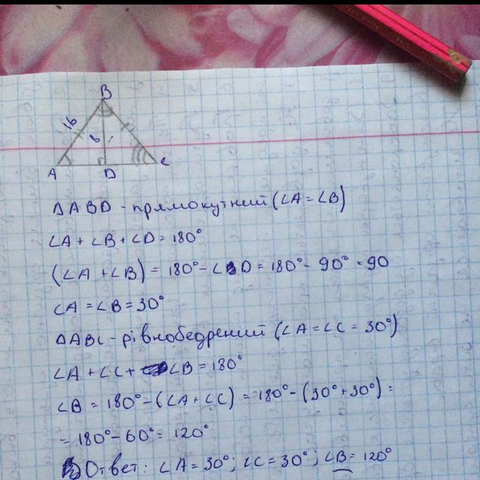 B
16 6
A D C
ΔABD - прямокутний (∠A = ∠B)
∠A + ∠B + ∠D = 180°
(∠A + ∠B) = 180° - ∠D = 180° - 90° = 90
∠A = ∠B = 30°
ΔABC - рівнобедрений (∠A = ∠C = 30°)
∠A + ∠C + ∠B = 180°
∠B = 180° - (∠A + ∠C) = 180° - (30° + 30°) =
= 180° - 60° = 120°
Ответ: ∠A = 30°; ∠C = 30°; ∠B = 120°